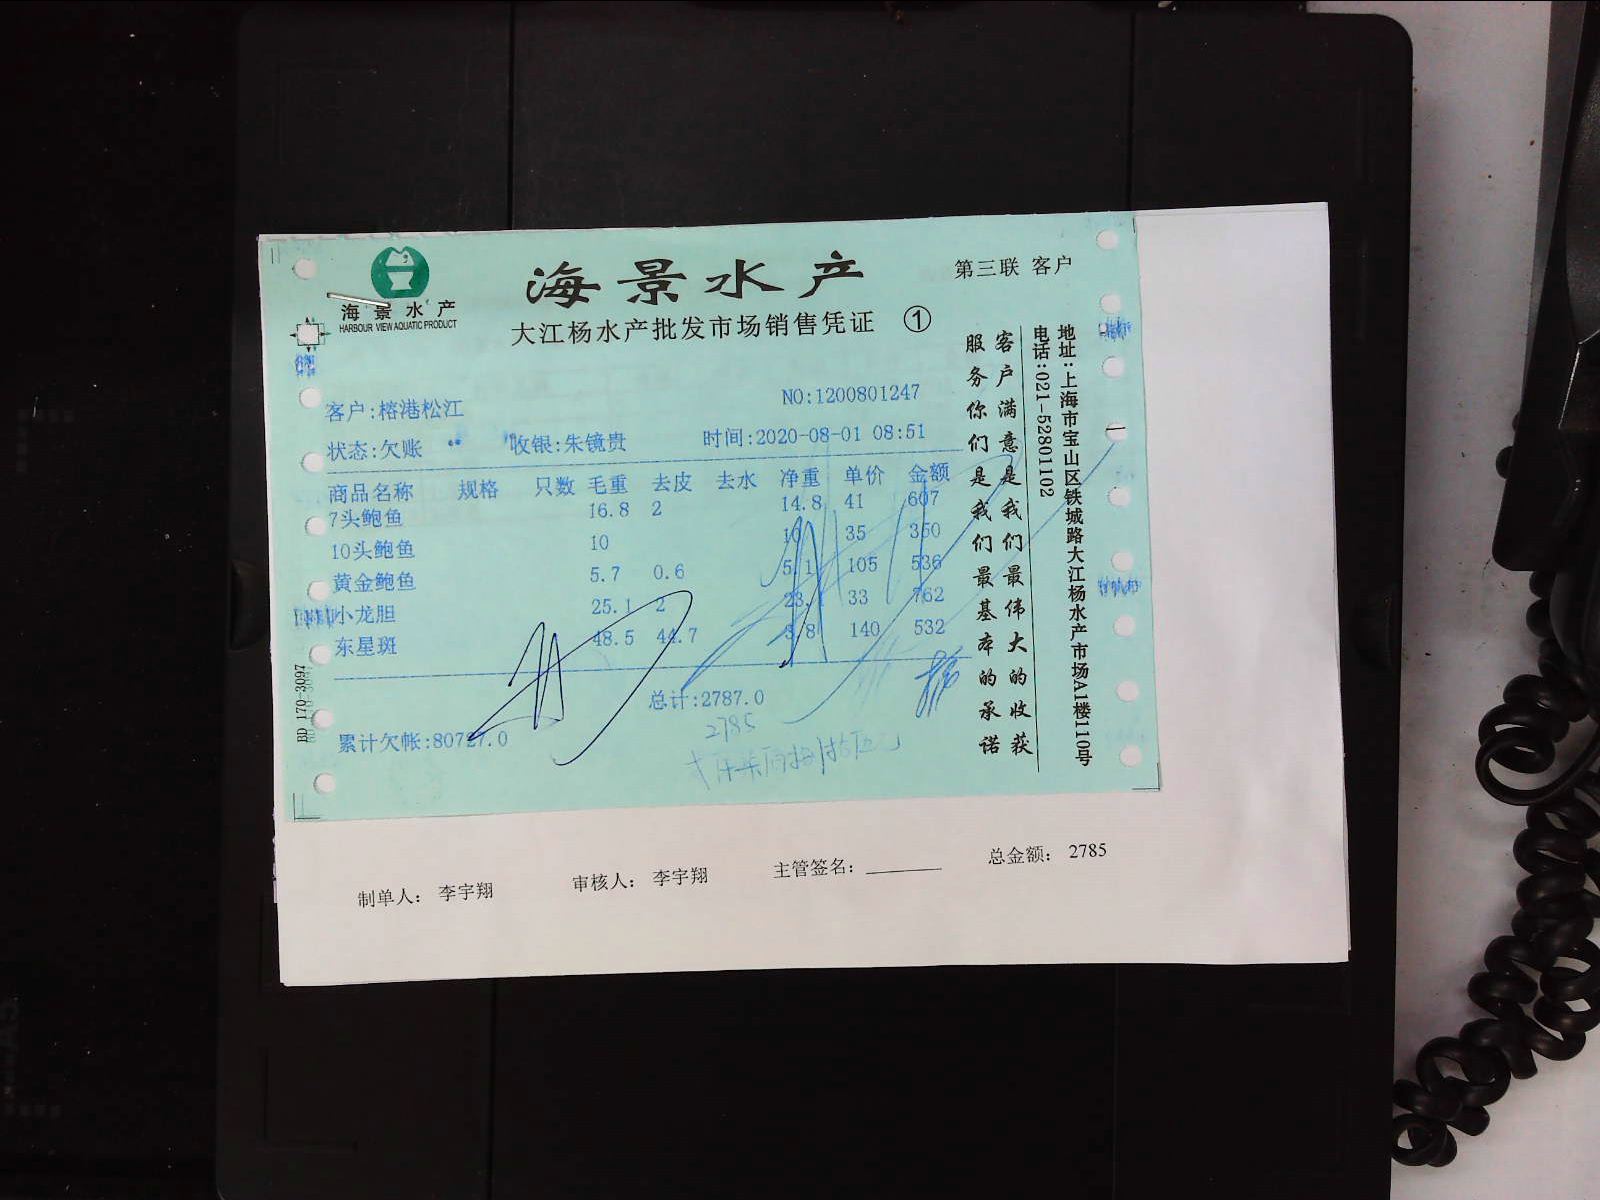 海景水产
HARBOUR VIEW AQUATIC PRODUCT
海景水产
第三联 客户
大江杨水产批发市场销售凭证 ①
客户:榕港松江 NO:1200801247
状态:欠账 收银:朱镜贵 时间:2020-08-01 08:51
商品名称 规格 只数 毛重 去皮 去水 净重 单价 金额
7头鲍鱼 16.8 2 14.8 41 607
10头鲍鱼 10 10 35 350
黄金鲍鱼 5.7 0.6 5.1 105 536
小龙胆 25.1 2 23.1 33 762
东星斑 48.5 44.7 3.8 140 532
总计:2787.0
2785
累计欠帐:80727.0
客户满意是我们最伟大的收获
服务你们是我们最基本的承诺
地址:上海市宝山区铁城路大江杨水产市场A1楼110号
电话:021-52801102
BD 170-3097
制单人: 李宇翔 审核人: 李宇翔 主管签名: 总金额: 2785